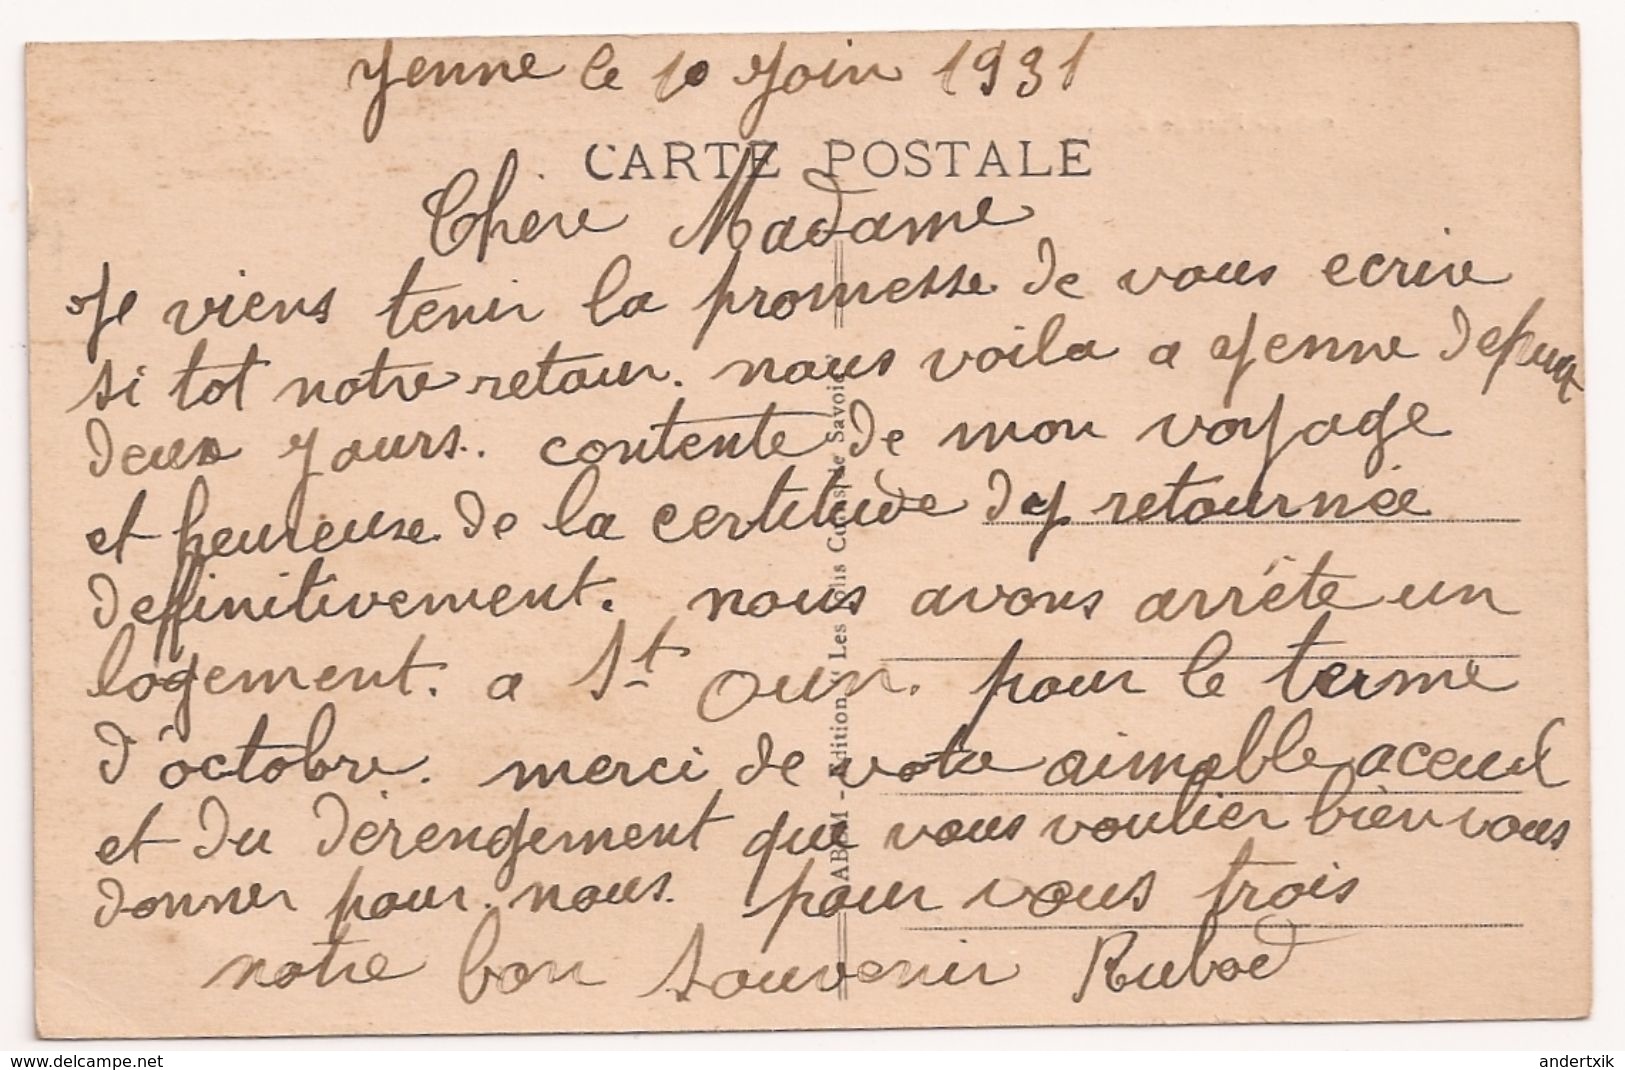 Yenne le 10 Join 1931
CARTE POSTALE
Chère Madame
Je viens tenir la promesse de vous ecrire
si tot notre retour. nous voila a Yenne depuis
deux Jours. contente de mon voyage
et heureuse de la certitude dy retournée
deffinitivement. nous avons arrête un
logement. a St Oun. pour le terme
d'octobre. merci de votre aimable aceuil
et du dérengement que vous voulier bien vous
donner pour nous. pour vous trois
notre bon souvenir Rubod
Edition "Les Jolis Coins de Savoie
andertxik
www.delcampe.net